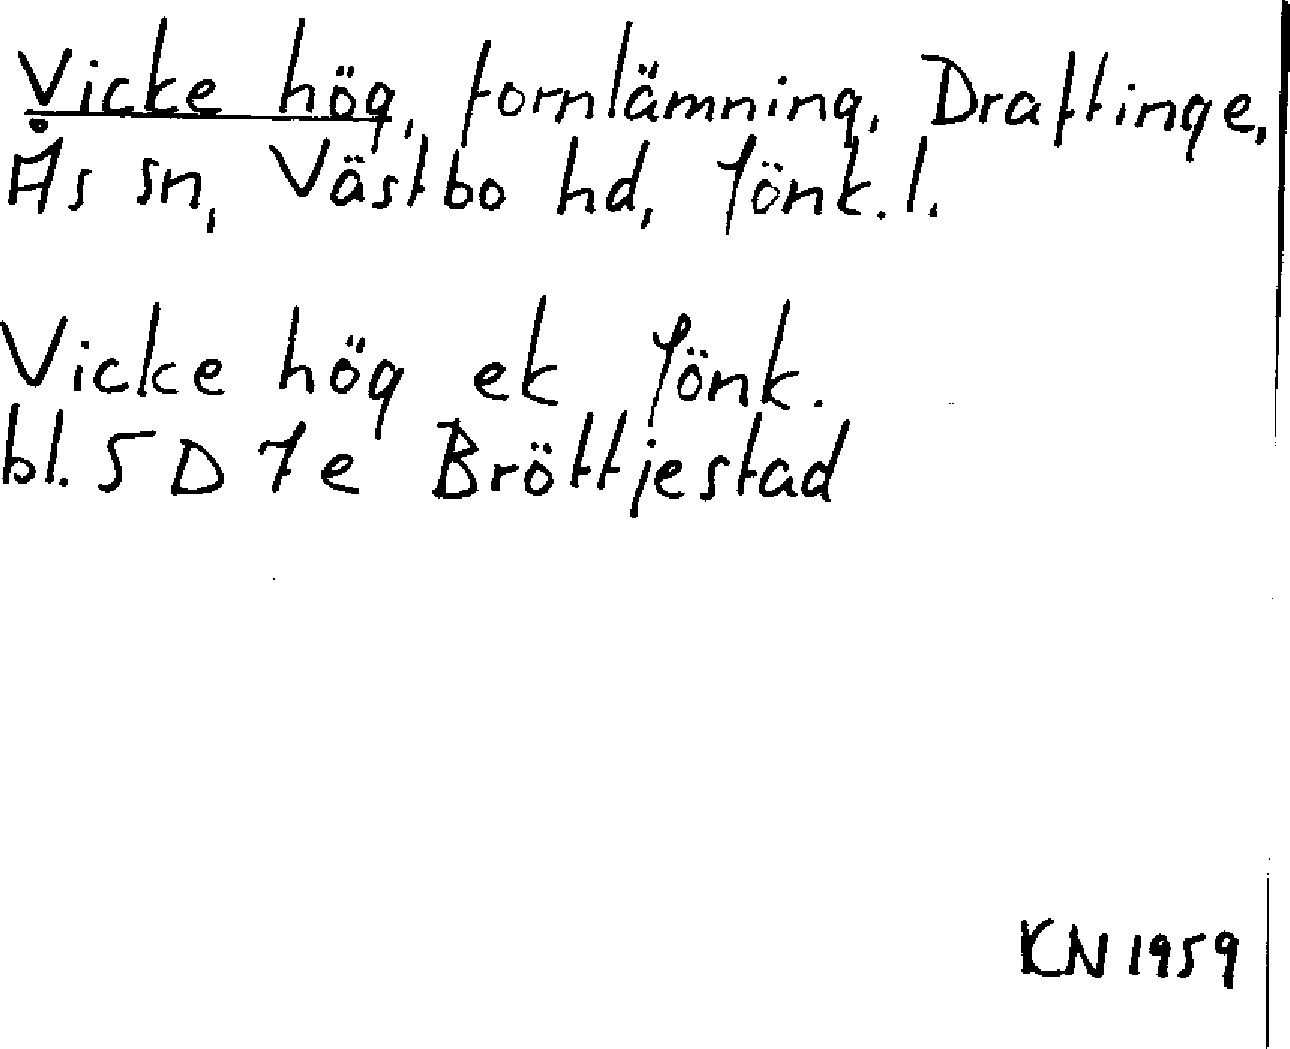 Vicke hög, fornlämning, Draftinge,
Ås sn, Västbo hd, Jönk. l.
Vicke hög ek Jönk.
bl. 5 D 7 e Bröttjestad
KN 1959